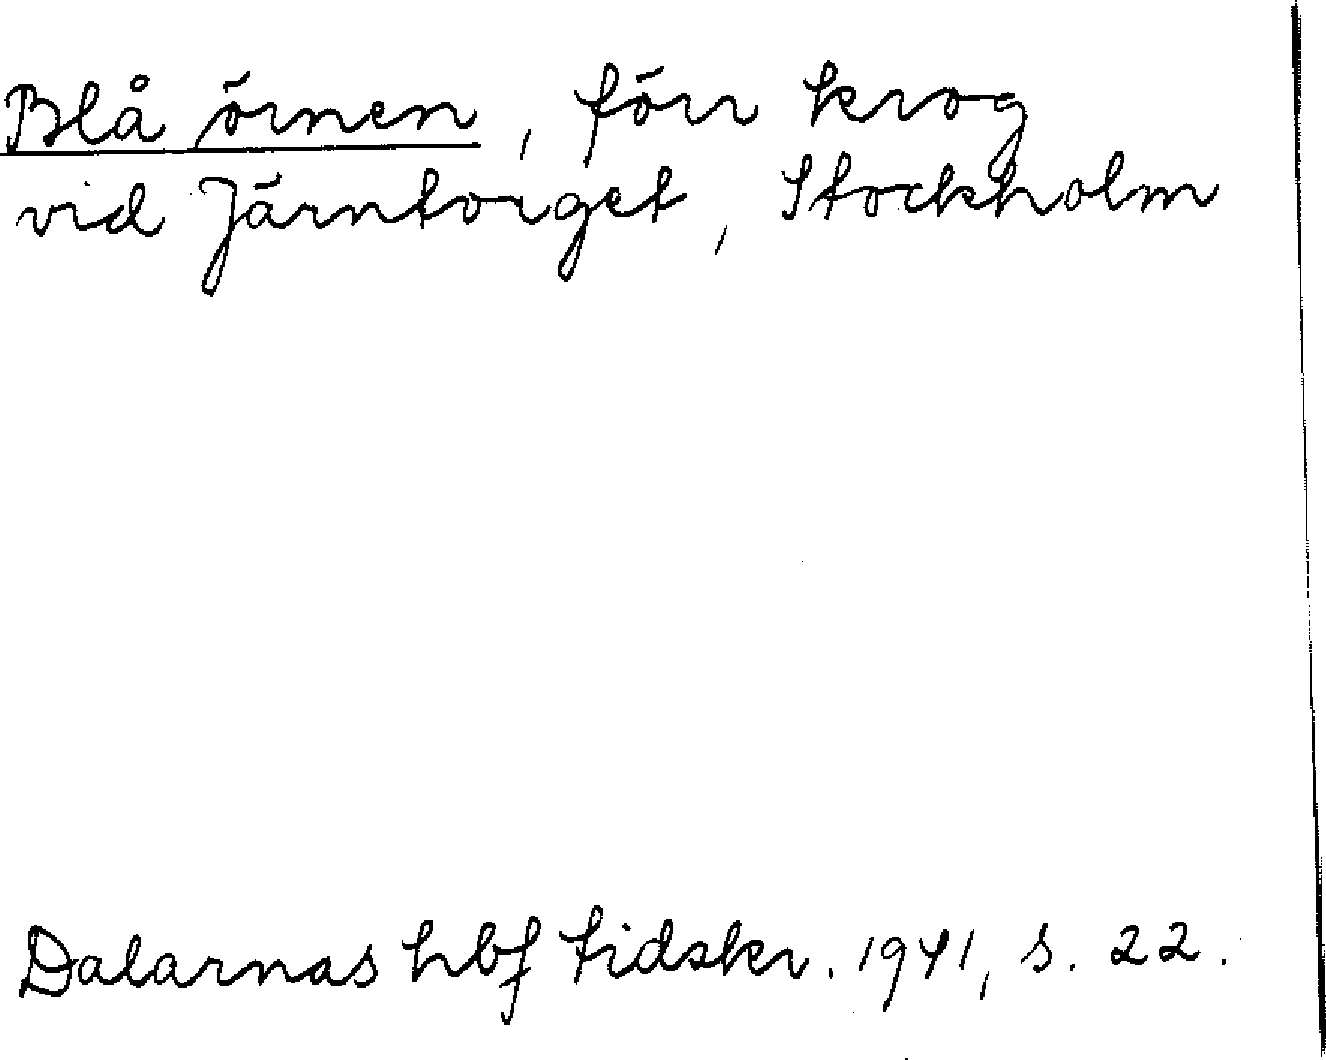 Blå örnen, förr krog
vid Järntorget, Stockholm
Dalarnas hbf tidskr. 1941, s. 22.